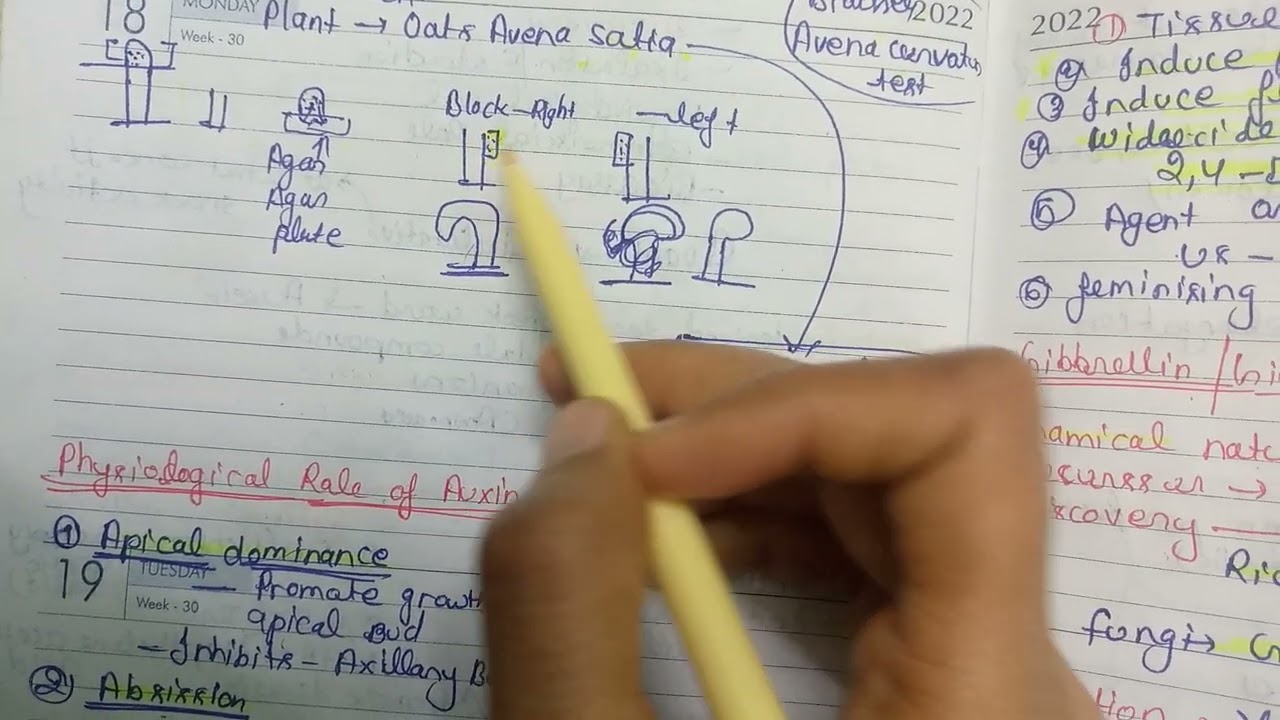 18 MONDAY
Week - 30
Plant → Oats Avena satia
2022
Avena curvatus
test
Block - Right - left
Agar
Agar
plate
Physiological Role of Auxin
① Apical dominance
19 TUESDAY
Week - 30
— Promate growth
apical Bud
- Inhibits - Axillary B
② Absission
2022 ① Tissue
Induce
③ Induce
④ widecide
2,4 -
⑤ Agent
⑥ feminising
Gibbrellin /
amical nat
scovery
fungi →